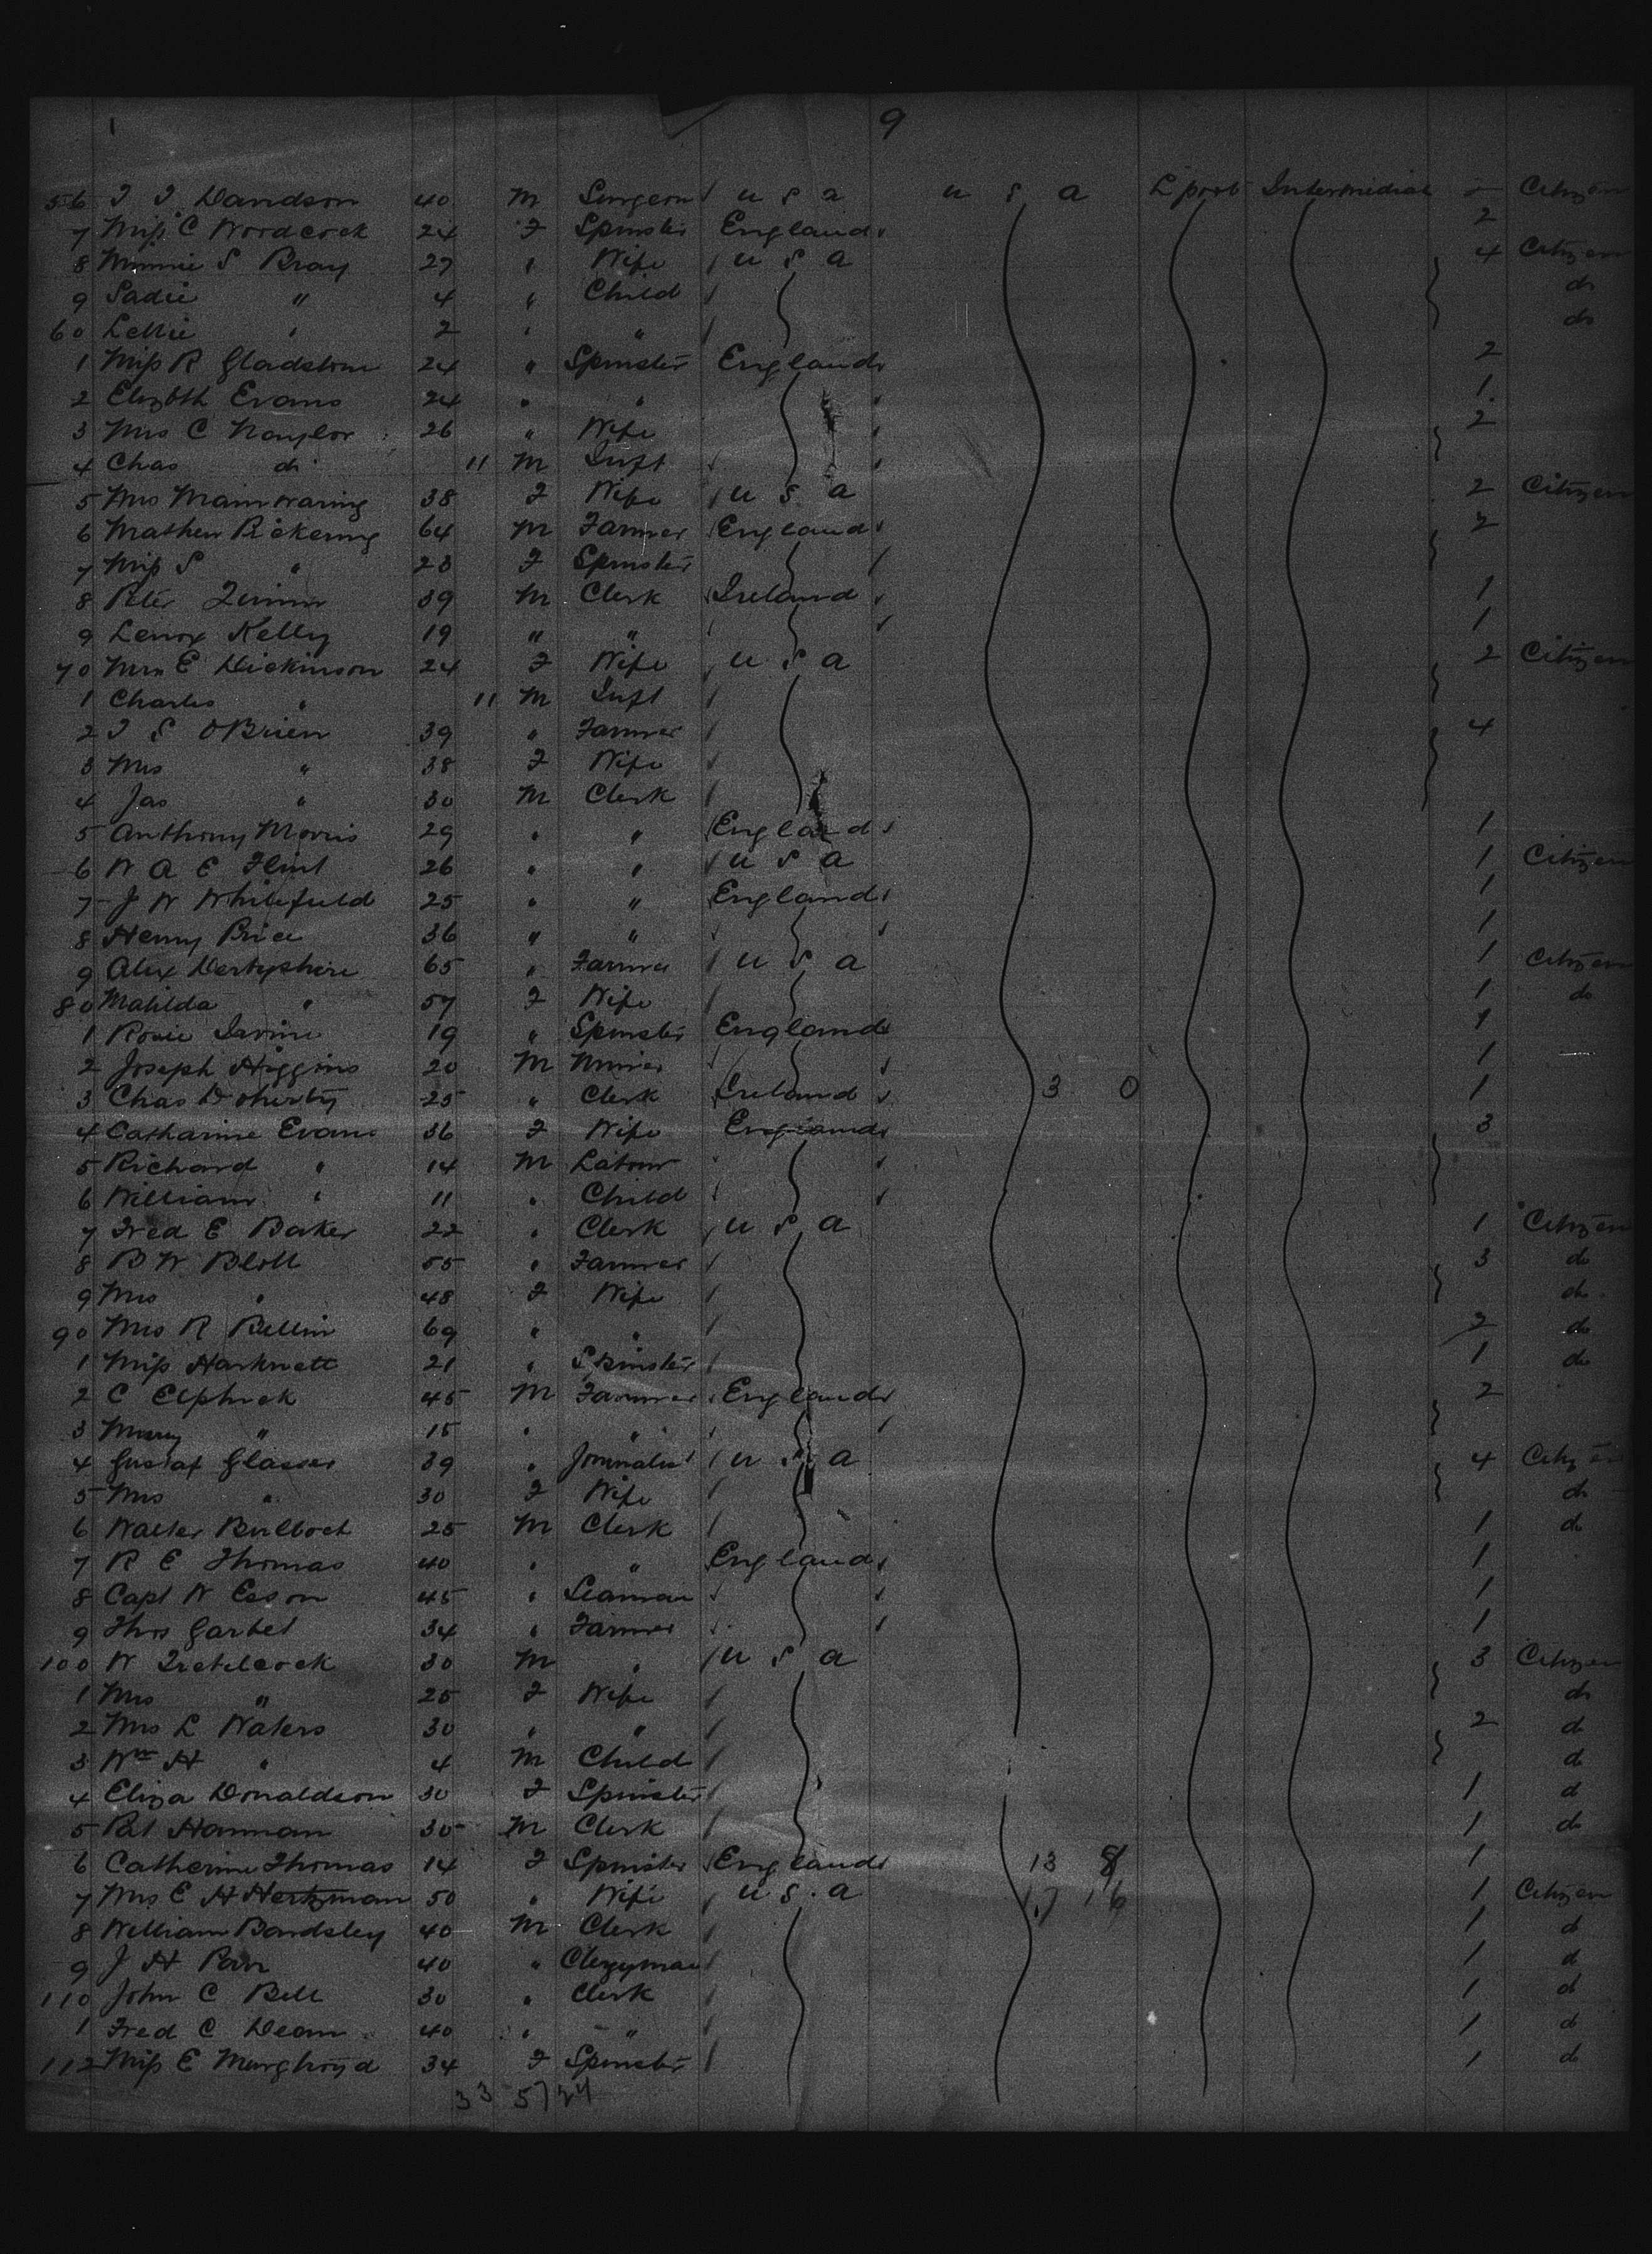 9
56 J J Davidson 40 M Surgeon U S A U S A L'pool Intermediate Citizen
7 Miss C Woodcock 24 F Spinster England 2
8 Minnie S Bray 27 " Wife U S A 4 Citizen
9 Sadie " 4 " Child do
60 " 2 " " do
1 Miss R Gladstone 24 " Spinster England 2
2 Elizbth Evans 24 " " 1
3 Mrs C Naylor 26 " Wife 2
4 Chas do 11 M Inft
5 Mrs Mainwaring 38 F Wife U S A 2 Citizen
6 Mathew Pickering 64 M Farmer England 2
7 Miss S " 23 F Spinster
8 Peter 39 M Clerk Ireland 1
9 Lenox Kelly 19 " " 1
70 Mrs E Dickinson 24 F Wife U S A 2 Citizen
1 Charles " 11 M Inft
2 J S OBrien 39 " Farmer 4
3 Mrs " 38 F Wife
4 Jas " 30 M Clerk
5 Anthony Morris 29 " " England 1
6 W A E Flint 26 " " U S A 1 Citizen
7 J W Whitefield 25 " " England 1
8 Henry Price 36 " " 1
9 Alex Derbyshire 65 " Farmer U S A 1 Citizen
80 Matilda " 57 F Wife 1 do
1 Rosie 19 " Spinster England 1
2 Joseph Higgins 20 M Miner 1
3 Chas Doherty 25 " Clerk Ireland 3 0 1
4 Catharine Evans 36 F Wife England 3
5 Richard " 14 M Labour
6 William " 11 " Child
7 Fred E Baker 22 " Clerk U S A 1 Citizen
8 B W 55 " Farmer 3 do
9 Mrs " 48 F Wife do
90 Mrs R 69 " " 2 do
1 Miss Harknett 21 " Spinster 1 do
2 C Elphick 45 M Farmer England 2
3 " 15 " "
4 Gustaf Glasser 39 " Journalist U S A 4 Citizen
5 Mrs " 30 F Wife do
6 Walter 25 M Clerk 1 do
7 R E Thomas 40 " " England 1
8 Capt W Esson 45 " Seaman 1
9 Thos Garbet 34 " Farmer 1
100 W 30 M " U S A 3 Citizen
1 Mrs " 25 F Wife do
2 Mrs L Waters 30 " " 2 d
3 Wm H " 4 M Child d
4 Eliza Donaldson 30 F Spinster 1 d
5 Pat Hannan 30 M Clerk 1 do
6 Catherine Thomas 14 F Spinster England 13 8 1
7 Mrs E H Hertzman 50 " Wife U S A 17 16 1 Citizen
8 William Bardsley 40 M Clerk 1 d
9 J H Parr 40 " Clergyman 1 d
110 John C Bell 30 " Clerk 1 d
1 Fred C Dean 40 " " 1 d
112 Miss E Murgatroyd 34 F Spinster 1 do
33 57 24